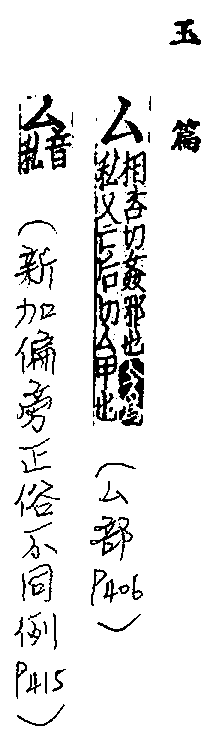 玉篇
厶
相咨切姦邪也
私又亡后切厶甲也
(厶部P406)
厶
音
私
(新加偏旁正俗不同例P415)